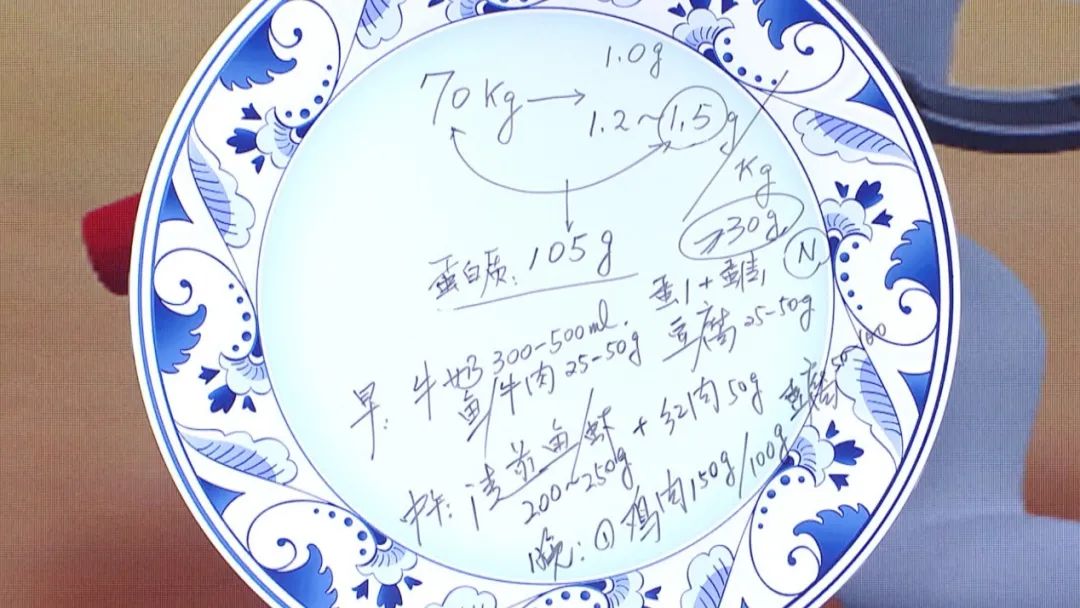 1.0g
70Kg → 1.2~1.5g/Kg
≥30g
N
蛋白质: 105g
蛋1+蛋清1
早: 牛奶300-500ml.
鱼/牛肉25-50g 豆腐25-50g
中午: 清蒸鱼/虾 + 红肉50g 豆腐50-100
200~250g
晚: ①鸡肉150g/100g